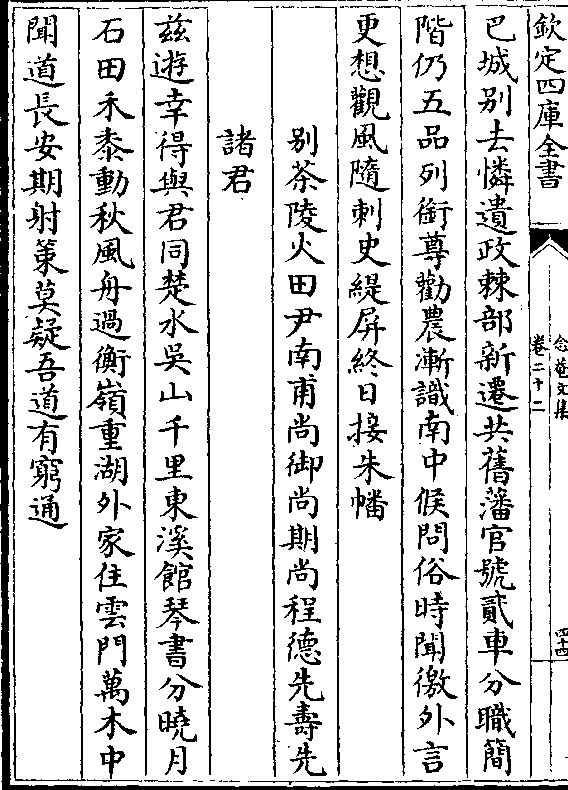 欽定四庫全書
念菴文集
卷二十二
四十四
巴城别去憐遺政棘部新遷共舊藩官號貳車分職簡
階仍五品列銜尊勸農漸識南中候問俗時聞徼外言
更想觀風隨刺史緹屏終日接朱幡
别茶陵火田尹南甫尚御尚期尚程德先壽先
諸君
兹遊幸得與君同楚水吳山千里東溪館琴書分曉月
石田禾黍動秋風舟過衡嶺重湖外家住雲門萬木中
聞道長安期射策莫疑吾道有窮通